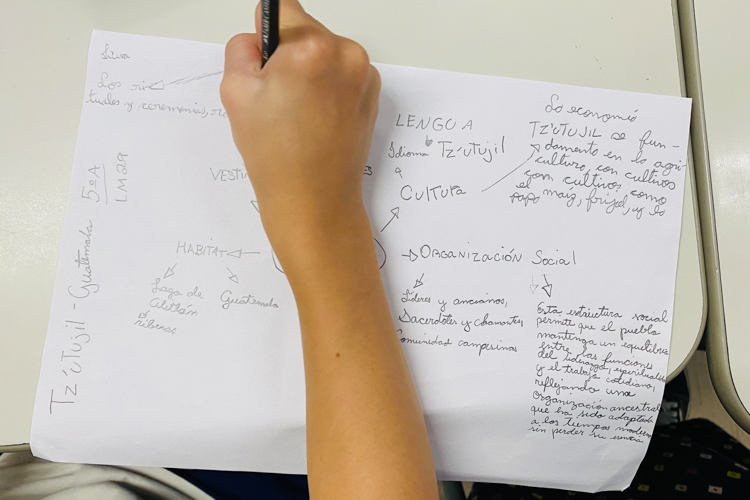 Los ri
tuales y ceremonias,
Tz'utujil - Guatemala 5ºA
LM29
VESTI
HABITAT
Lago de
Atitlán
riberas
Guatemala
LENGUA
Idioma Tz'utujil
CULTURA
La economía
TZ'UTUJIL se fun-
damenta en la agri-
cultura, con cultivos
con cultivos como
el maíz, frijol, y la
papa
ORGANIZACIÓN Social
Líderes y ancianos,
Sacerdotes y chamanes,
Comunidad campesinas
Esta estructura social
permite que el pueblo
mantenga un equilibrio
entre las funciones
del liderazgo, espirituales
y el trabajo cotidiano,
reflejando una
organización ancestral
que ha sido adaptada
a los tiempos modern
sin perder su esencia